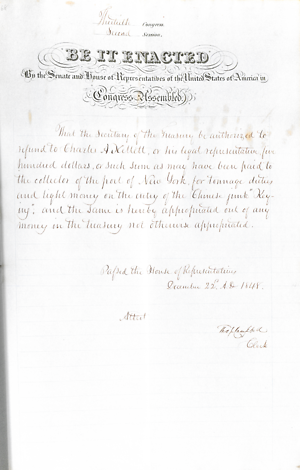 Thirtieth Congress
Second Session.
BE IT ENACTED
By the Senate and House of Representatives of the United States of America in
Congress Assembled,
That the Secretary of the Treasury be authorized to
refund to Charles A. Kellett, or his legal representative five
hundred dollars, or such sum as may have been paid to
the collector of the port of New York for tonnage duties
and light money on the entry of the Chinese junk "Key-
ing", and the same is hereby appropriated out of any
money in the treasury not otherwise appropriated.
Passed the House of Representatives
December 22d A.D. 1848.
Attest
Clerk